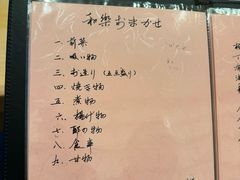 和樂おまかせ
一、前菜
二、吸い物
三、お造り（五点盛り）
四、焼き物
五、煮物
六、揚げ物
七、酢の物
八、食事
九、甘物